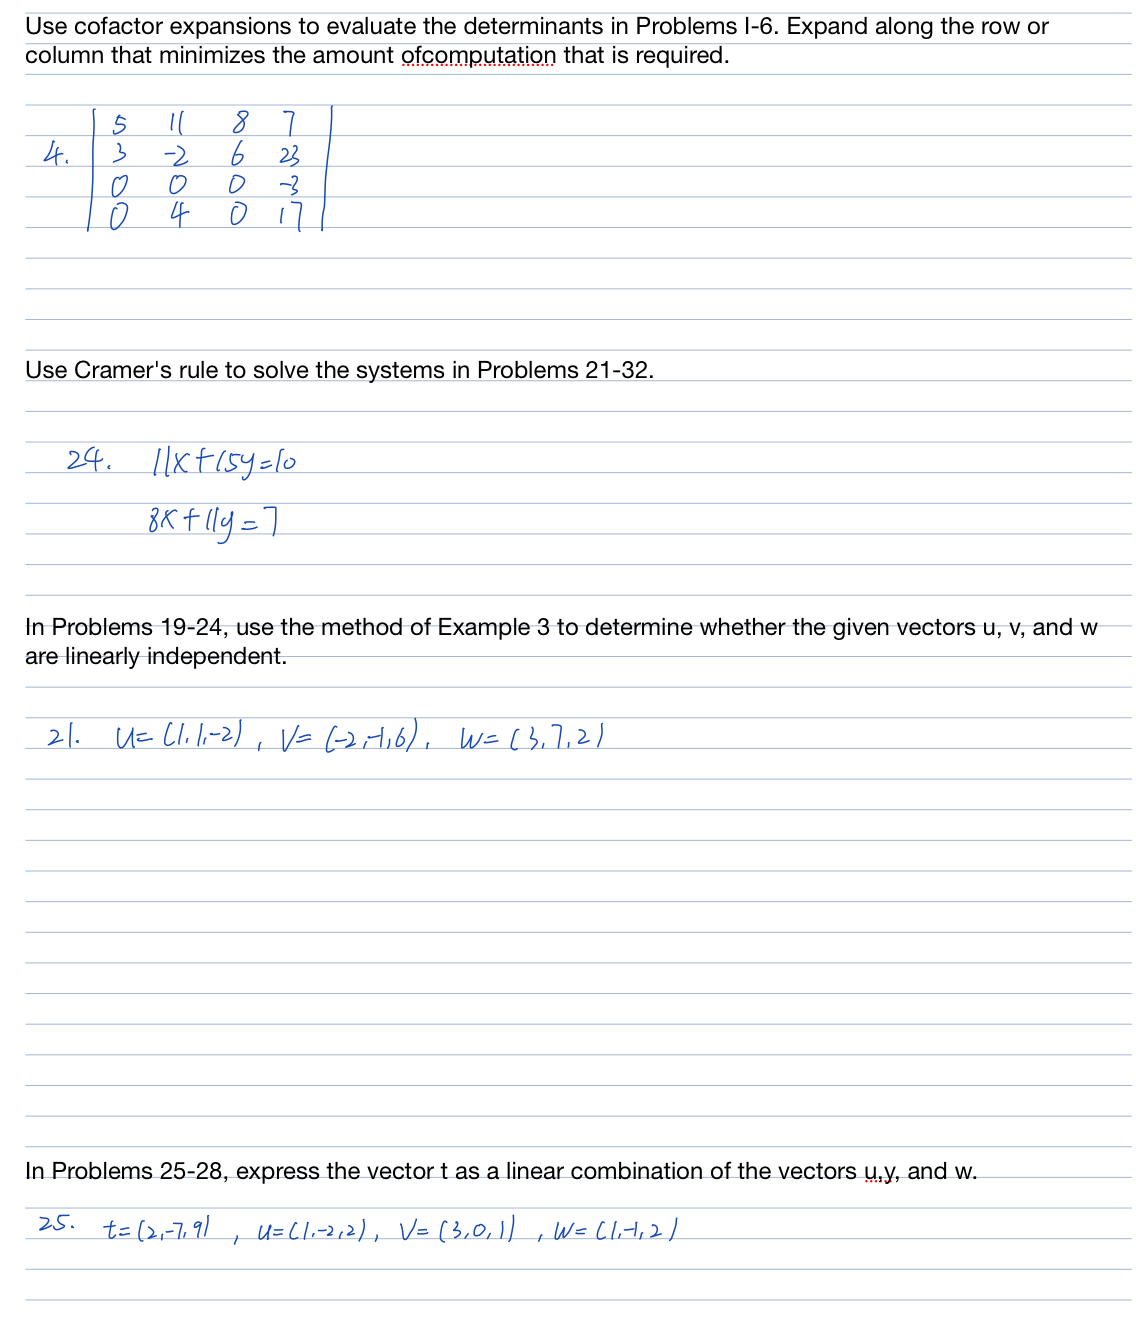 Use cofactor expansions to evaluate the determinants in Problems I-6. Expand along the row or
column that minimizes the amount ofcomputation that is required.
5 11 8 7
4. 3 -2 6 23
0 0 0 -3
0 4 0 17
Use Cramer's rule to solve the systems in Problems 21-32.
24. 11x+15y=10
8x+11y=7
In Problems 19-24, use the method of Example 3 to determine whether the given vectors u, v, and w
are linearly independent.
21. u=(1,1,-2), v=(-2,-1,6), w=(3,7,2)
In Problems 25-28, express the vector t as a linear combination of the vectors u,y, and w.
25. t=(2,-7,9), u=(1,-2,2), v=(3,0,1), w=(1,-1,2)